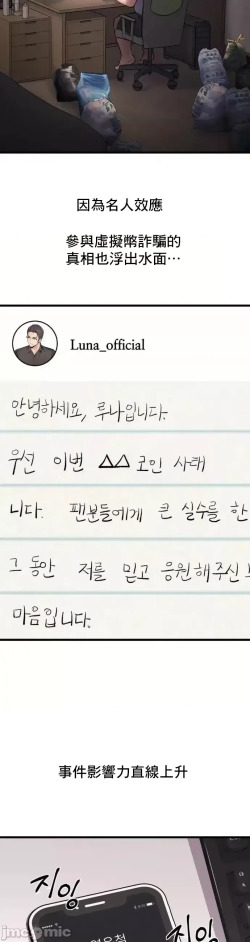 因為名人效應
參與虛擬幣詐騙的
真相也浮出水面…
Luna_official
안녕하세요, 루나입니다.
우선 이번 △△코인 사태
니다. 팬분들에게 큰 실수를 한
그 동안 저를 믿고 응원해주신
마음입니다.
事件影響力直線上升
지잉
지잉
jmcomic